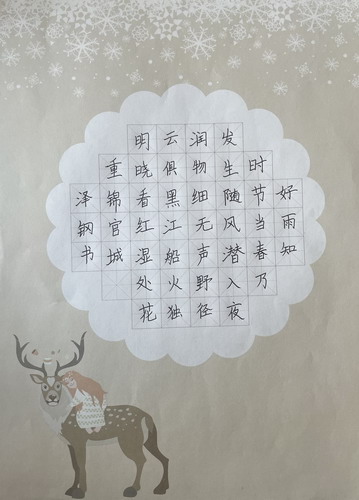 好雨知
时节当春乃
发生随风潜入夜
润物细无声野径
云俱黑江船火独
明晓看红湿处花
重锦官城
泽钢书